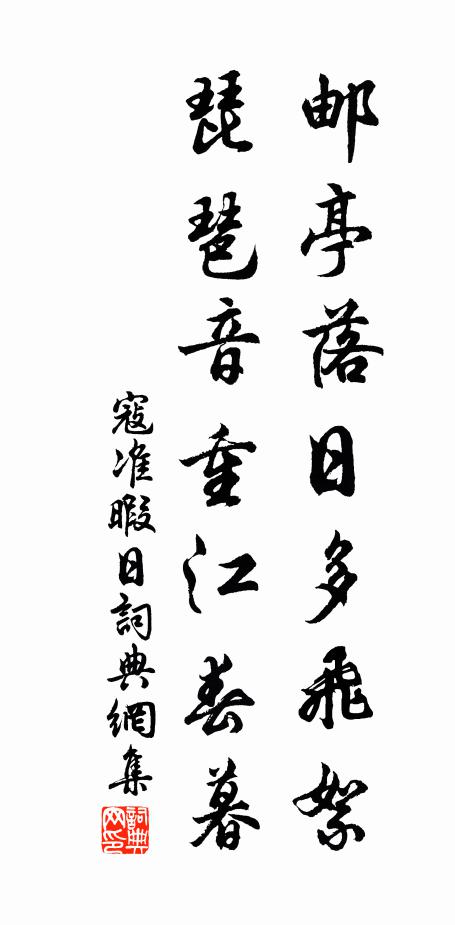 邮亭落日多飛絮
琵琶音重江春暮
寇准暇日詞典網集
詞典网印